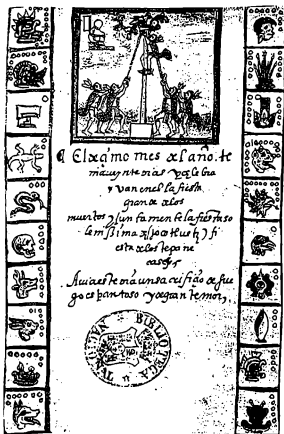 ¶ El deçimo mes del año. te
nia veynte dias y çelebra
van en el la fiesta
grande de los
muertos y juntamente la fiesta so
fi
esta de los tepane
cas
Avia este dia un sacrifiçio de fue
go espantoso y de gran temor,
BIBLIOTECA NACIONAL